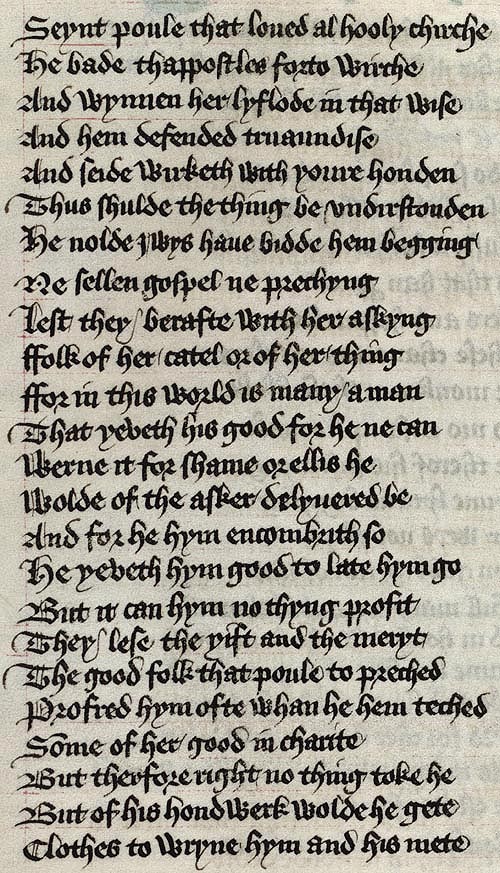 Seynt poule that loued al hooly chirche
He bade thappostles forto wirche
And wynnen her lyflode in that wise
And hem defended truaundise
And seide wirketh with youre honden
Thus shulde the thing be vndirstonden
He nolde iwys haue bidde hem begging
Ne sellen gospel ne prechyng
Lest they berafte with her askyng
ffolk of her catel or of her thing
ffor in this world is many a man
That yeveth his good for he ne can
Werne it for shame or ellis he
Wolde of the asker delyuered be
And for he hym encombrith so
He yeveth hym good to late hym go
But it can hym no thyng profit
They lese the yift and the meryt
The good folk that poule to preched
Profred hym ofte whan he hem teched
Some of her good in charite
But therfore right no thing toke he
But of his hondwerk wolde he gete
Clothes to wryne hym and his mete